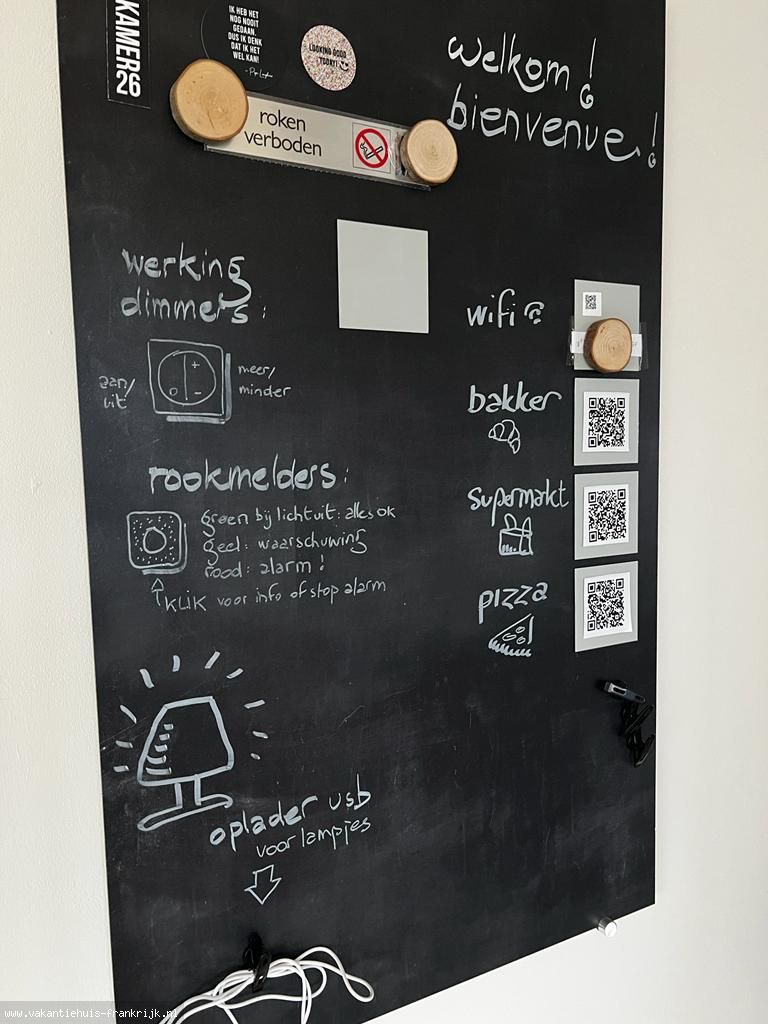 KAMER26
IK HEB HET
NOG NOOIT
GEDAAN,
DUS IK DENK
DAT IK HET
WEL KAN!
LOOKING GOOD
TODAY!
welkom!
bienvenue!
roken
verboden
werking
dimmers:
aan/
uit
meer/
minder
rookmelders:
groen bij licht uit: alles ok
geel: waarschuwing
rood: alarm!
KLIK voor info of stop alarm
wifi
bakker
supermarkt
pizza
oplader usb
voor lampjes
www.vakantiehuis-frankrijk.nl